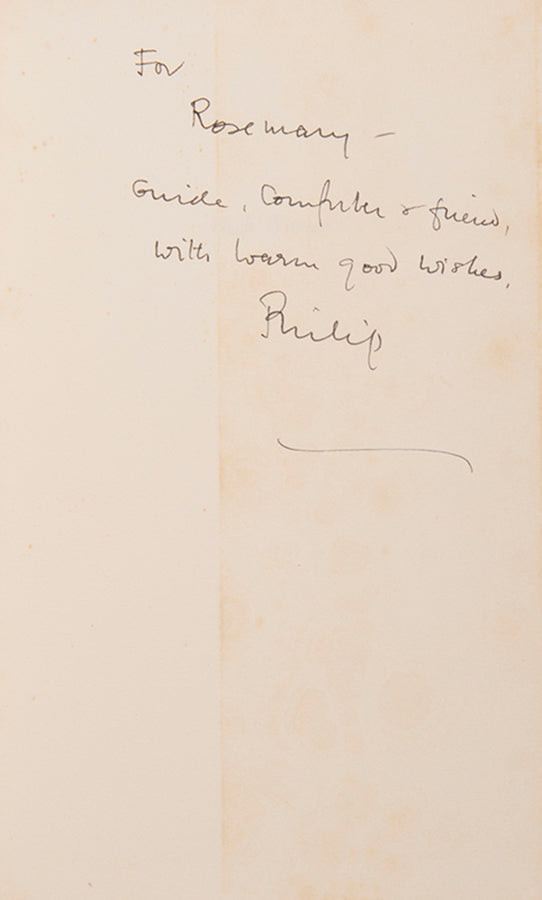 For
Rosemary –
Guide, Comforter & friend,
with warm good wishes,
Philip